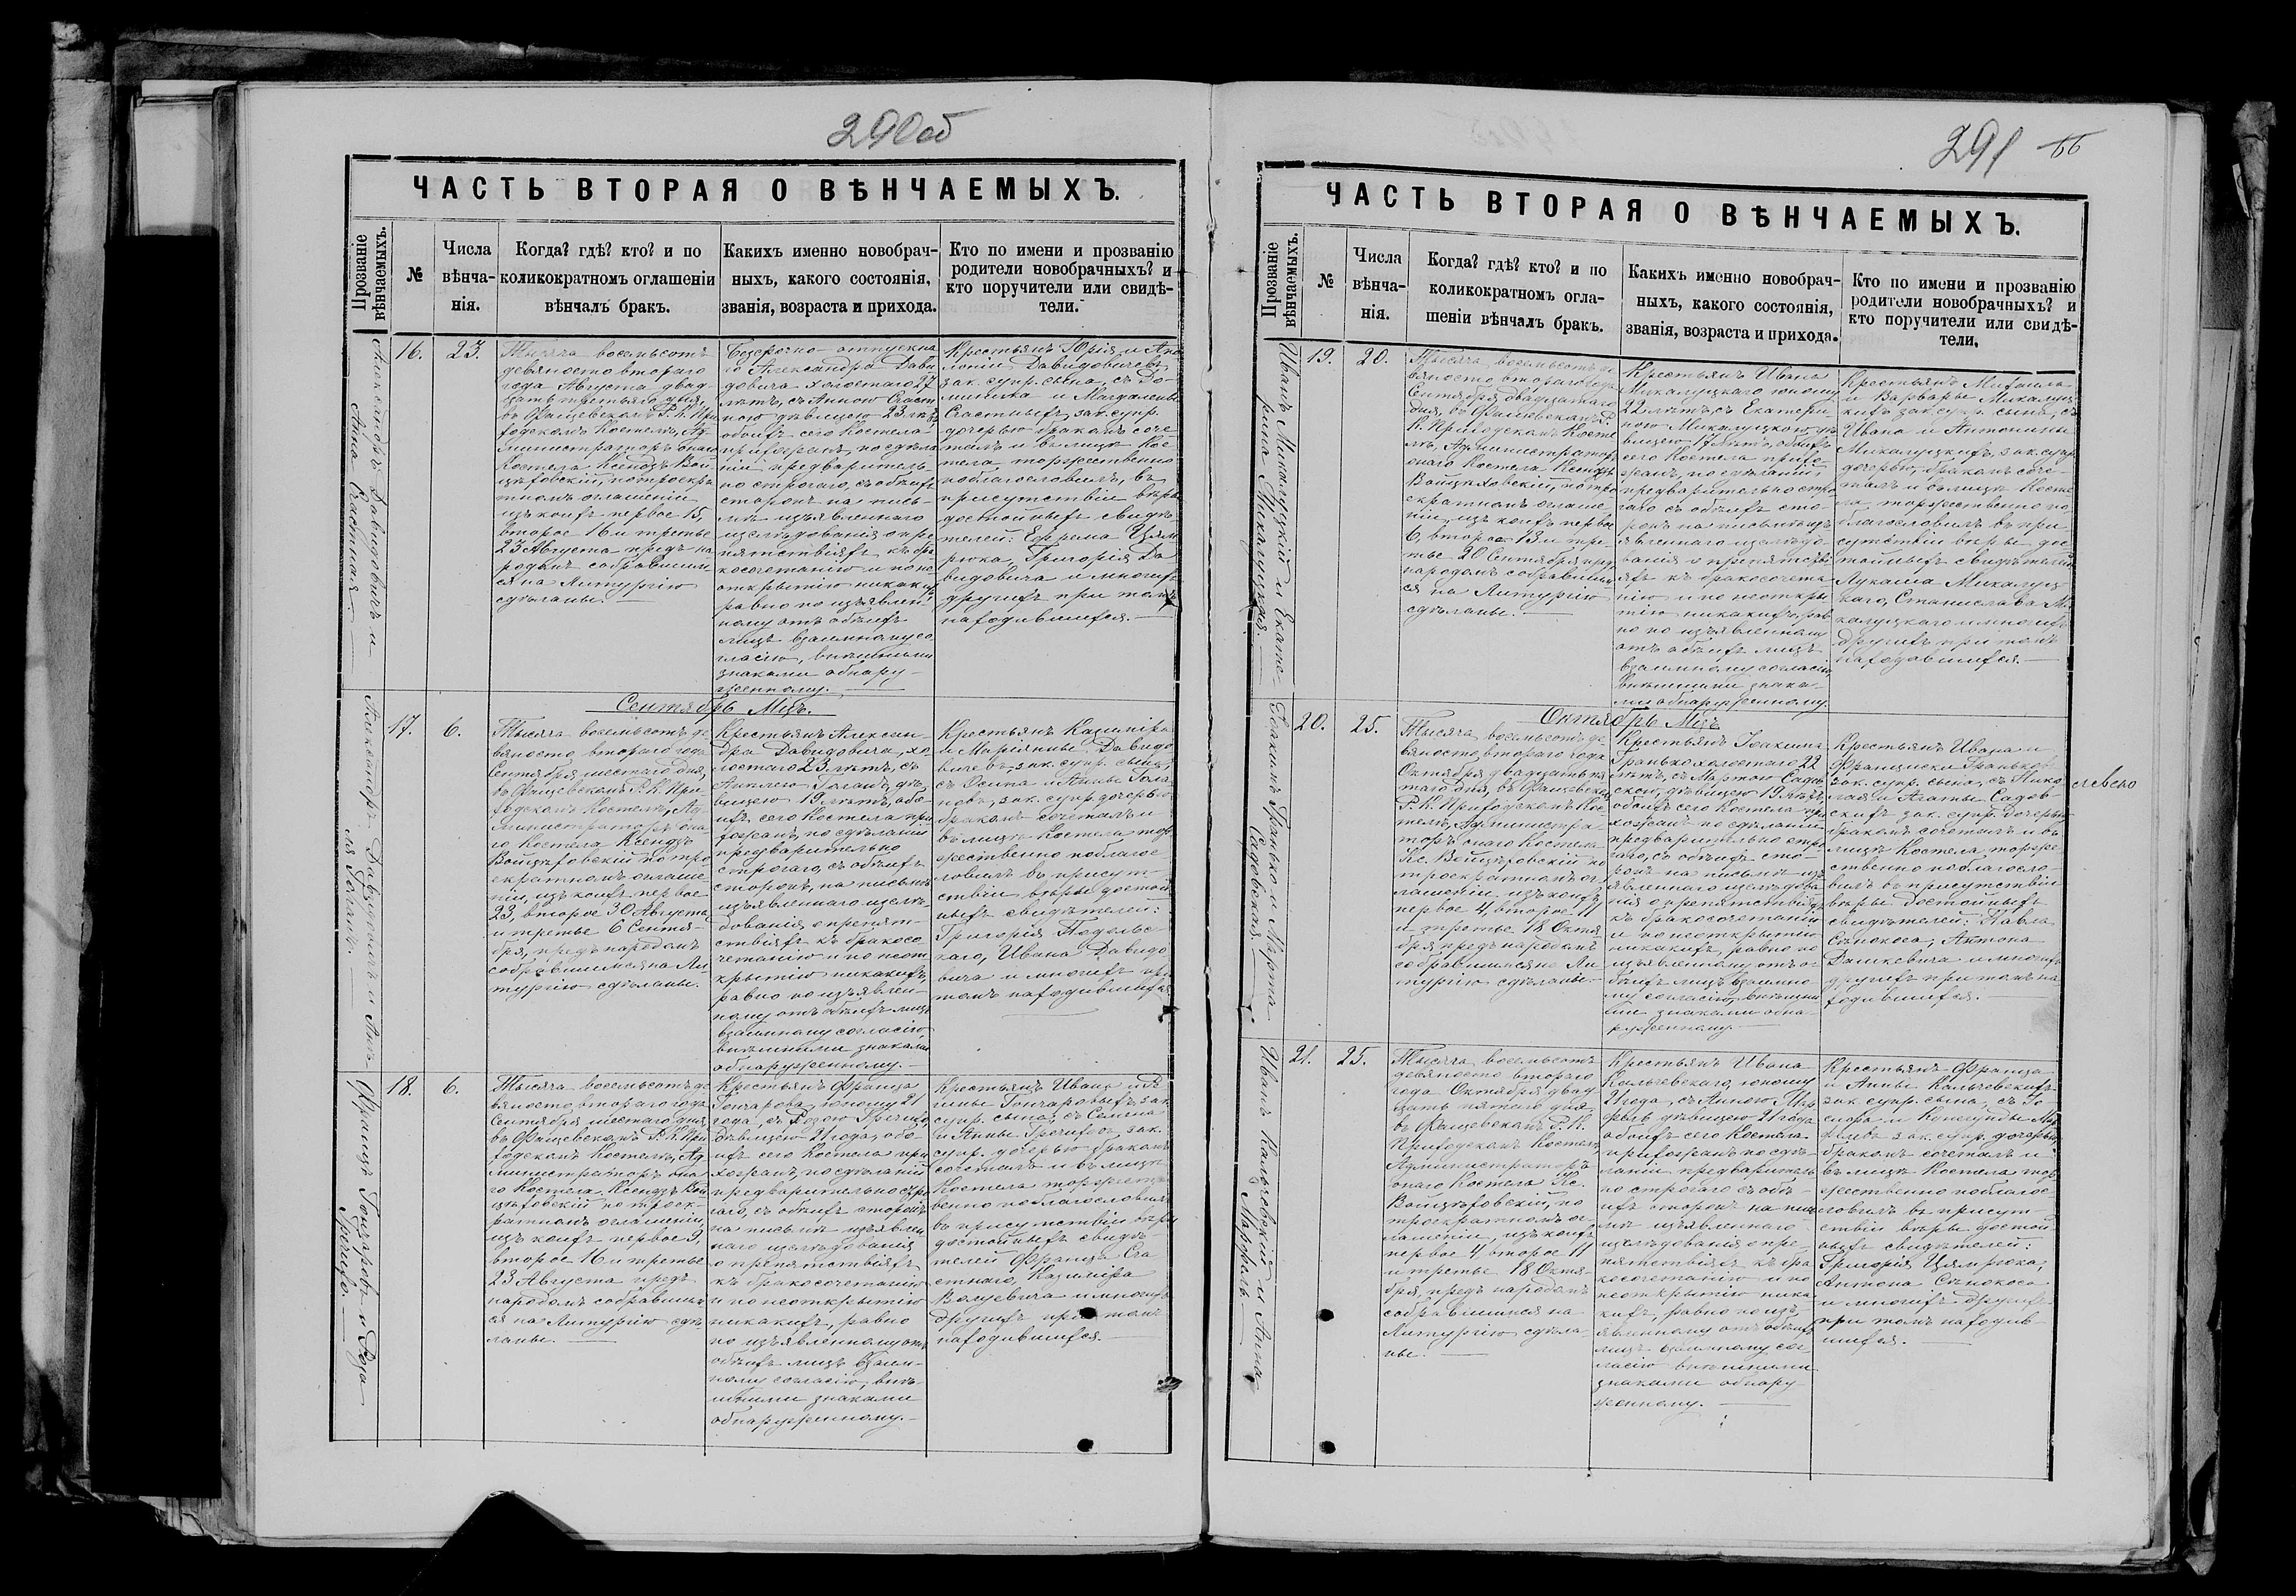 290об
ЧАСТЬ ВТОРАЯ О ВѢНЧАЕМЫХЪ.
Прозваніе вѣнчаемыхъ.
№
Числа
вѣнча-
нія.
Когда? гдѣ? кто? и по
коликократномъ оглашеніи
вѣнчалъ бракъ.
Какихъ именно новобрач-
ныхъ, какого состоянія,
званія, возраста и прихода.
Кто по имени и прозванію
родители новобрачныхъ? и
кто поручители или свидѣ-
тели.
Александръ Давидовичъ и
Анна Счастная.
16.
23.
Тысяча восемьсотъ
девяносто втораго
года Августа двад-
цать третьяго дня,
въ Фащевскомъ Р. К. При
ходскомъ Костелѣ, Ад-
министраторъ онаго
Костела Ксендзъ Вой
цѣховскій, по троекра
тномъ оглашеніи
изъ коихъ первое 15,
второе 16 и третье
23 Августа предъ на
родомъ собравшим-
ся на Литургію
сдѣланы.
Безсрочно-отпускна
го Александра Дави
довича холостаго 27
лѣтъ, съ Анною Счаст
ною дѣвицею 23 лѣтъ
обоихъ сего Костела
прихожанъ, по сдѣла
ніи предваритель-
но строгаго, съ обѣихъ
сторонъ на пись-
мѣ изъявленнаго
изслѣдованія о пре
пятствіяхъ къ бра
косочетанію и по не
открытію никакихъ
равно по изъявлен-
ному отъ обѣихъ
лицъ взаимному со
гласію, внѣшними
знаками обнару-
женному.
Крестьянъ Юрія и Апо
лоніи Давидовичевъ
зак. супр. сына, съ До-
миника и Магдалены
Счастныхъ, зак. супр.
дочерью бракомъ соче-
талъ и въ лицѣ Кос-
тела торжественно
поблагословилъ, въ
присутствіи вѣры
достойныхъ свидѣ-
телей: Ефрема Цям
рюка, Григорія Да
видовича и многихъ
другихъ при томъ
находившихся.
Сентябрь Мцъ.
Александръ Давидовичъ и Анѣ-
ля Голанъ.
17.
6.
Тысяча восемьсотъ де-
вяносто втораго года
Сентября шестаго дня,
въ Фащевскомъ Р. К. При
ходскомъ Костелѣ, Ад
министраторъ она
го Костела Ксендзъ
Войцѣховскій по тро
екратномъ оглаше-
ніи, изъ коихъ первое
23, второе 30 Августа
и третье 6 Сентя-
бря, предъ народомъ
собравшимся на Ли
тургію сдѣланы.
Крестьянъ Алексан-
дра Давидовича, хо-
лостаго 23 лѣтъ, съ
Анѣлею Голанъ, дѣ-
вицею 19 лѣтъ, обо-
ихъ сего Костела при
хожанъ, по сдѣланіи
предварительно
строгаго, съ обѣихъ
сторонъ, на письмѣ
изъявленнаго изслѣ-
дованія о препят-
ствіяхъ къ бракосо
четанію и по неот
крытію никакихъ,
равно по изъявлен-
ному отъ обѣихъ лицъ
взаимному согласію
внѣшними знаками
обнаруженному.
Крестьянъ Казиміра
и Маріянны Давидо
вичевъ, зак. супр. сына,
съ Осипа и Анны Гола
новъ, зак. супр. дочерью
бракомъ сочеталъ и
въ лицѣ Костела тор
жественно поблагос-
ловилъ въ присут-
ствіи вѣры достой
ныхъ свидѣтелей:
Григорія Подольс
каго, Ивана Давидо
вича и многихъ при
томъ находившихся
Францъ Гончаровъ и Роза
Гречихо.
18.
6.
Тысяча восемьсотъ де
вяносто втораго года
Сентября шестаго дня,
въ Фащевскомъ Р. К. При
ходскомъ Костелѣ, Ад
министраторъ она-
го Костела Ксендзъ Вой
цѣховскій по троек-
ратномъ оглашеніи
изъ коихъ первое 9,
второе 16 и третье
23 Августа предъ
народомъ собравшим
ся на Литургію сдѣ-
ланы.
Крестьянъ Франца
Гончарова, юношу 21
года, съ Розою Гречихо,
дѣвицею 21 года, обо-
ихъ сего Костела при
хожанъ, по сдѣланіи
предварительно стро
гаго, съ обѣихъ сторонъ
на письмѣ изъявлен
наго изслѣдованія
о препятствіяхъ
къ бракосочетанію
и по неоткрытію
никакихъ, равно
по изъявленному отъ
обѣихъ лицъ взаим-
ному согласію, внѣ-
шними знаками
обнаруженному.
Крестьянъ Ивана и
Гончаровыхъ, зак.
супр. сына, съ Семена
и Анны Гречиховъ, зак.
супр. дочерью бракомъ
сочеталъ и въ лицѣ
Костела торжест
венно поблагословилъ
въ присутствіи вѣры
достойныхъ свидѣ-
телей Франца Сча
стнаго, Казиміра
Валуевича и многихъ
другихъ при томъ
находившихся.
291
ЧАСТЬ ВТОРАЯ О ВѢНЧАЕМЫХЪ.
Прозваніе вѣнчаемыхъ.
№
Числа
вѣнча-
нія.
Когда? гдѣ? кто? и по
коликократномъ огла-
шеніи вѣнчалъ бракъ.
Какихъ именно новобрач-
ныхъ, какого состоянія,
званія, возраста и прихода.
Кто по имени и прозванію
родители новобрачныхъ? и
кто поручители или свидѣ-
тели.
Иванъ Микалуцкій и Екате-
рина Микалуцкая.
19.
20.
Тысяча восемьсотъ де
вяносто втораго года
Сентября двадцатаго
дня, въ Фащевскомъ Р.
К. Приходскомъ Косте
лѣ, Администраторъ
онаго Костела Ксендзъ
Войцѣховскій, по тро
екратномъ оглаше
ніи, изъ коихъ первое
6, второе 13 и тре-
тье 20 Сентября предъ
народомъ собравшим
ся на Литургію
сдѣланы.
Крестьянъ Ивана
Микалуцкаго юношу
22 лѣтъ, съ Екатери
ною Микалуцкою дѣ
вицею 17 лѣтъ, обоихъ
сего Костела прихо-
жанъ, по сдѣланіи
предварительно стро
гаго съ обѣихъ сто-
ронъ на письмѣ изъ
явленнаго изслѣдо-
ванія о препятстві
яхъ къ бракосочета-
нію и по неоткры
тію никакихъ, рав
но по изъявленному
отъ обѣихъ лицъ
взаимному согласію,
внѣшними знака-
ми обнаруженному.
Крестьянъ Михаила
и Варвары Микалуц
кихъ зак. супр. сына, съ
Ивана и Антонины
Микалуцкихъ, зак. супр.
дочерью, бракомъ соче-
талъ и въ лицѣ Косте
ла торжественно по
благословилъ въ при
сутствіи вѣры дос-
тойныхъ свидѣтелей
Лукаша Микалуц
каго, Станислава Ми
калуцкаго и многихъ
другихъ при томъ
находившихся.
Октябрь Мцъ
Іоакимъ Гранько и Марта
Садовская.
20.
25.
Тысяча восемьсотъ де-
вяносто втораго года
Октября двадцать пя
таго дня, въ Фащевскомъ
Р. К. Приходскомъ Кос-
телѣ, Администра-
торъ онаго Костела
Кс. Войцѣховскій по
троекратномъ ог-
лашеніи, изъ коихъ
первое 4, второе 11
и третье 18 Октя-
бря, предъ народомъ
собравшимся на Ли
тургію сдѣланы.
Крестьянъ Іоакима
Гранько холостаго 22
лѣтъ, съ Мартою Садов
скою, дѣвицею 19 лѣтъ,
обоихъ сего Костела при
хожанъ по сдѣланіи
предварительно стро
гаго, съ обѣихъ сто-
ронъ на письмѣ изъ
явленнаго изслѣдова
нія о препятствіяхъ
къ бракосочетанію
и по неоткрытію
никакихъ, равно по
изъявленному отъ о-
бѣихъ лицъ взаимно
му согласію, внѣшни
ми знаками обна-
руженному.
Крестьянъ Ивана и
Франциски Гранько
зак. супр. сына, съ Нико
лая и Агаты Садов-
скихъ зак. супр. дочерью
бракомъ сочеталъ и въ
лицѣ Костела торже
ственно поблагосло-
вилъ въ присутствіи
вѣры достойныхъ
свидѣтелей: Павла
Сѣнокоса, Антона
Дашкевича и многихъ
другихъ при томъ на
ходившихся.
Иванъ Кальчевскій и Анна
21.
25.
Тысяча восемьсотъ
девяносто втораго
года Октября двад
цать пятаго дня
въ Фащевскомъ Р. К.
Приходскомъ Костелѣ,
Администраторъ
онаго Костела Кс.
Войцѣховскій, по
троекратномъ ог-
лашеніи, изъ коихъ
первое 4 второе 11
и третье 18 Октя-
бря, предъ народомъ
собравшимся на
Литургію сдѣла-
ны.
Крестьянъ Ивана
Кальчевскаго, юношу
21 года, съ Анною
дѣвицею 21 года
обоихъ сего Костела
прихожанъ по сдѣ-
ланіи предваритель
но строгаго съ обѣ-
ихъ сторонъ на пись
мѣ изъявленнаго
изслѣдованія о пре-
пятствіяхъ къ бра
косочетанію и по
неоткрытію ника-
кихъ, равно по изъ-
явленному отъ обѣихъ
лицъ взаимному сог
ласію внѣшними
знаками обнару-
женному.
Крестьянъ Франца
и Анны Кальчевскихъ
зак. супр. сына, съ Іо-
сифа и Кунегунды
зак. супр. дочерью
бракомъ сочеталъ и
въ лицѣ Костела тор
жественно поблагос
ловилъ въ присут-
ствіи вѣры достой
ныхъ свидѣтелей:
Григорія Цямрюка,
Антона Сѣнокоса
и многихъ другихъ
при томъ находив-
шихся.